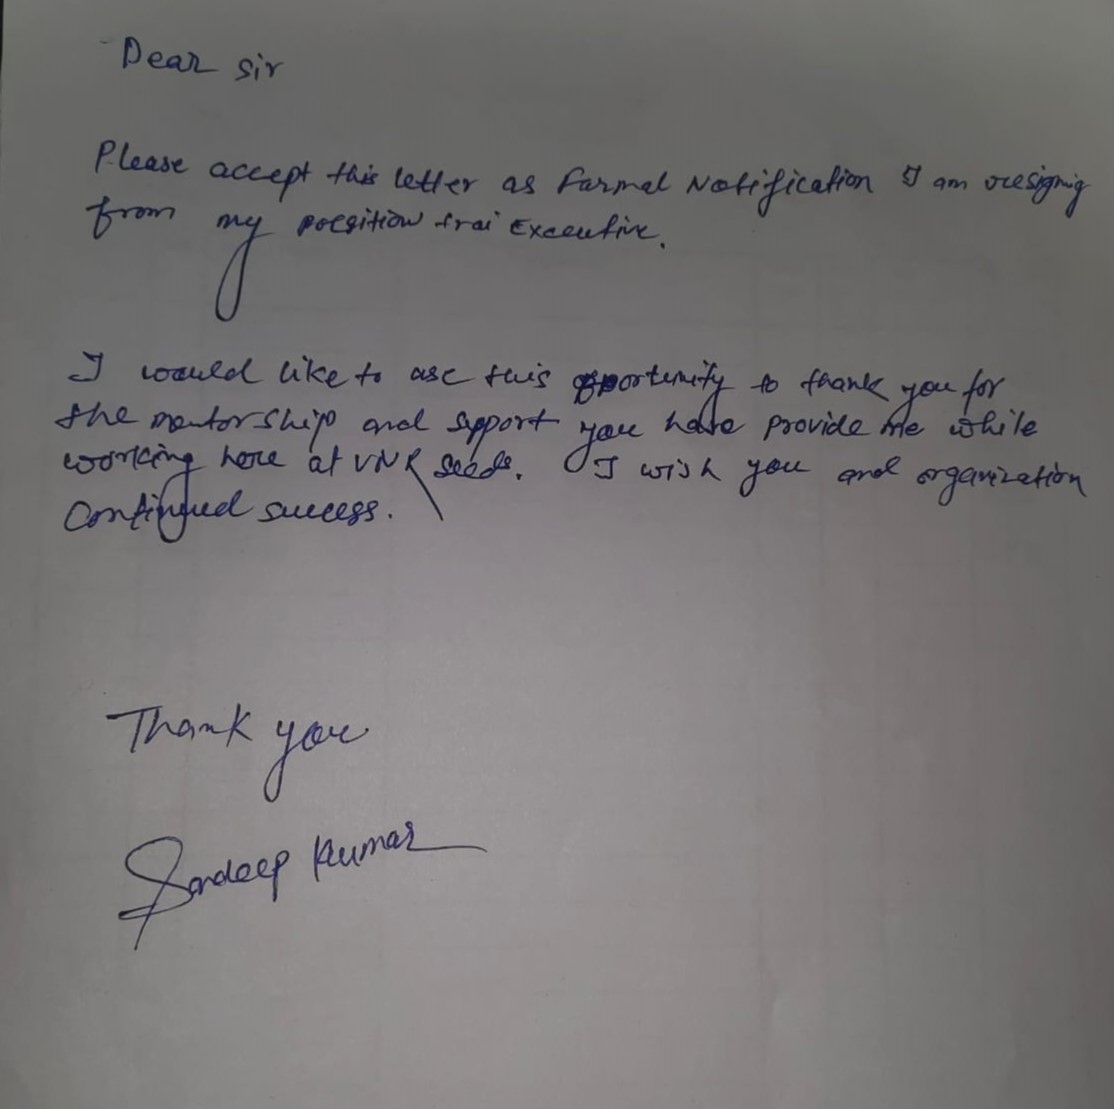 Dear sir
Please accept this letter as Farmal Notification I am resigning
from my position trai Executive.
I would like to use this opportunity to thank you for
the mentorship and support you have provide me while
working here at VNR seeds. I wish you and organization
Continued success.
Thank you
Sandeep Kumar